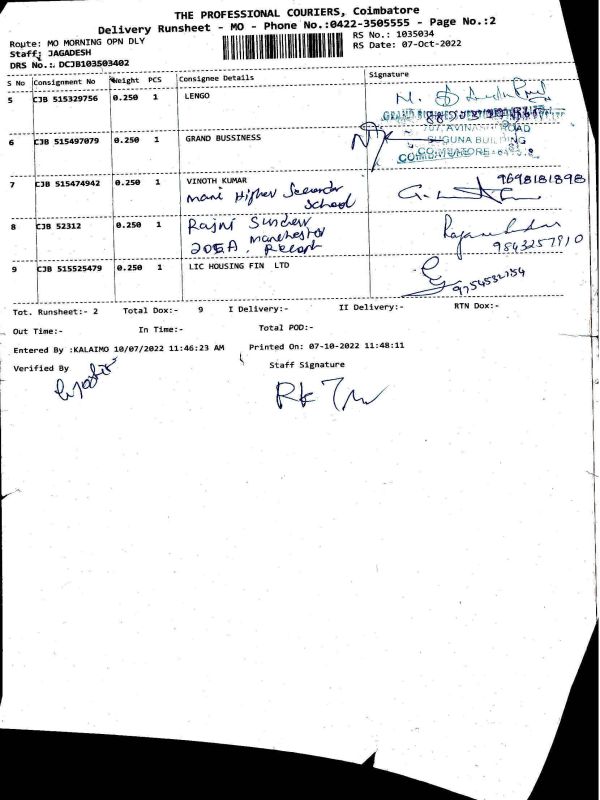 THE PROFESSIONAL COURIERS, Coimbatore
Delivery Runsheet - MO - Phone No.:0422-3505555 - Page No.:2
Route: MO MORNING OPN DLY
RS No.: 1035034
Staff: JAGADESH
RS Date: 07-Oct-2022
DRS No.:. DCJB103503402
S No Consignment No Weight PCS Consignee Details Signature
5 CJB 515329756 0.250 1 LENGO
6 CJB 515497079 0.250 1 GRAND BUSSINESS
AVINASHI ROAD
SUGUNA BUILDING
COIMBATORE
7 CJB 515474942 0.250 1 VINOTH KUMAR 9698181898
mani Higher Secondar
School
8 CJB 52312 0.250 1 Rajni Sundew
205A, Manchester
9843257910
9 CJB 515525479 0.250 1 LIC HOUSING FIN LTD
9754532154
Tot. Runsheet:- 2 Total Dox:- 9 I Delivery:- II Delivery:- RTN Dox:-
Out Time:- In Time:- Total POD:-
Entered By :KALAIMO 10/07/2022 11:46:23 AM Printed On: 07-10-2022 11:48:11
Verified By Staff Signature